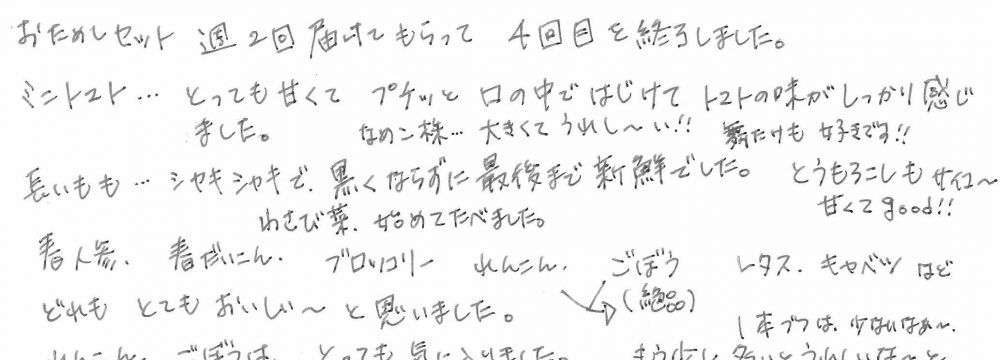 おためしセット 週2回届けてもらって 4回目を終了しました。
ミニトマト… とっても甘くて プチッと口の中ではじけて トマトの味がしっかり感じ
ました。 なめこ株… 大きくてうれし〜い!! 舞たけも好きです!!
長いもも… シャキシャキで、黒くならずに最後まで新鮮でした。 とうもろこしもサイコ〜
わさび菜、始めてたべました。 甘くてgood!!
春人参、春だいこん、ブロッコリー れんこん、ごぼう レタス、キャベツなど
どれもとてもおいしい〜と思いました。 (絶品)
1本づつは、少ないなぁ〜、
れんこん、ごぼうは、とっても気に入りました。 もう少し多いとうれしいな〜と